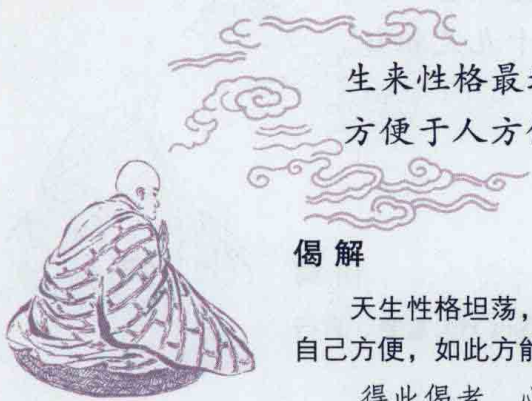 生来性格最
方便于人方
偈解
天生性格坦荡，
自己方便，如此方能
得此偈者